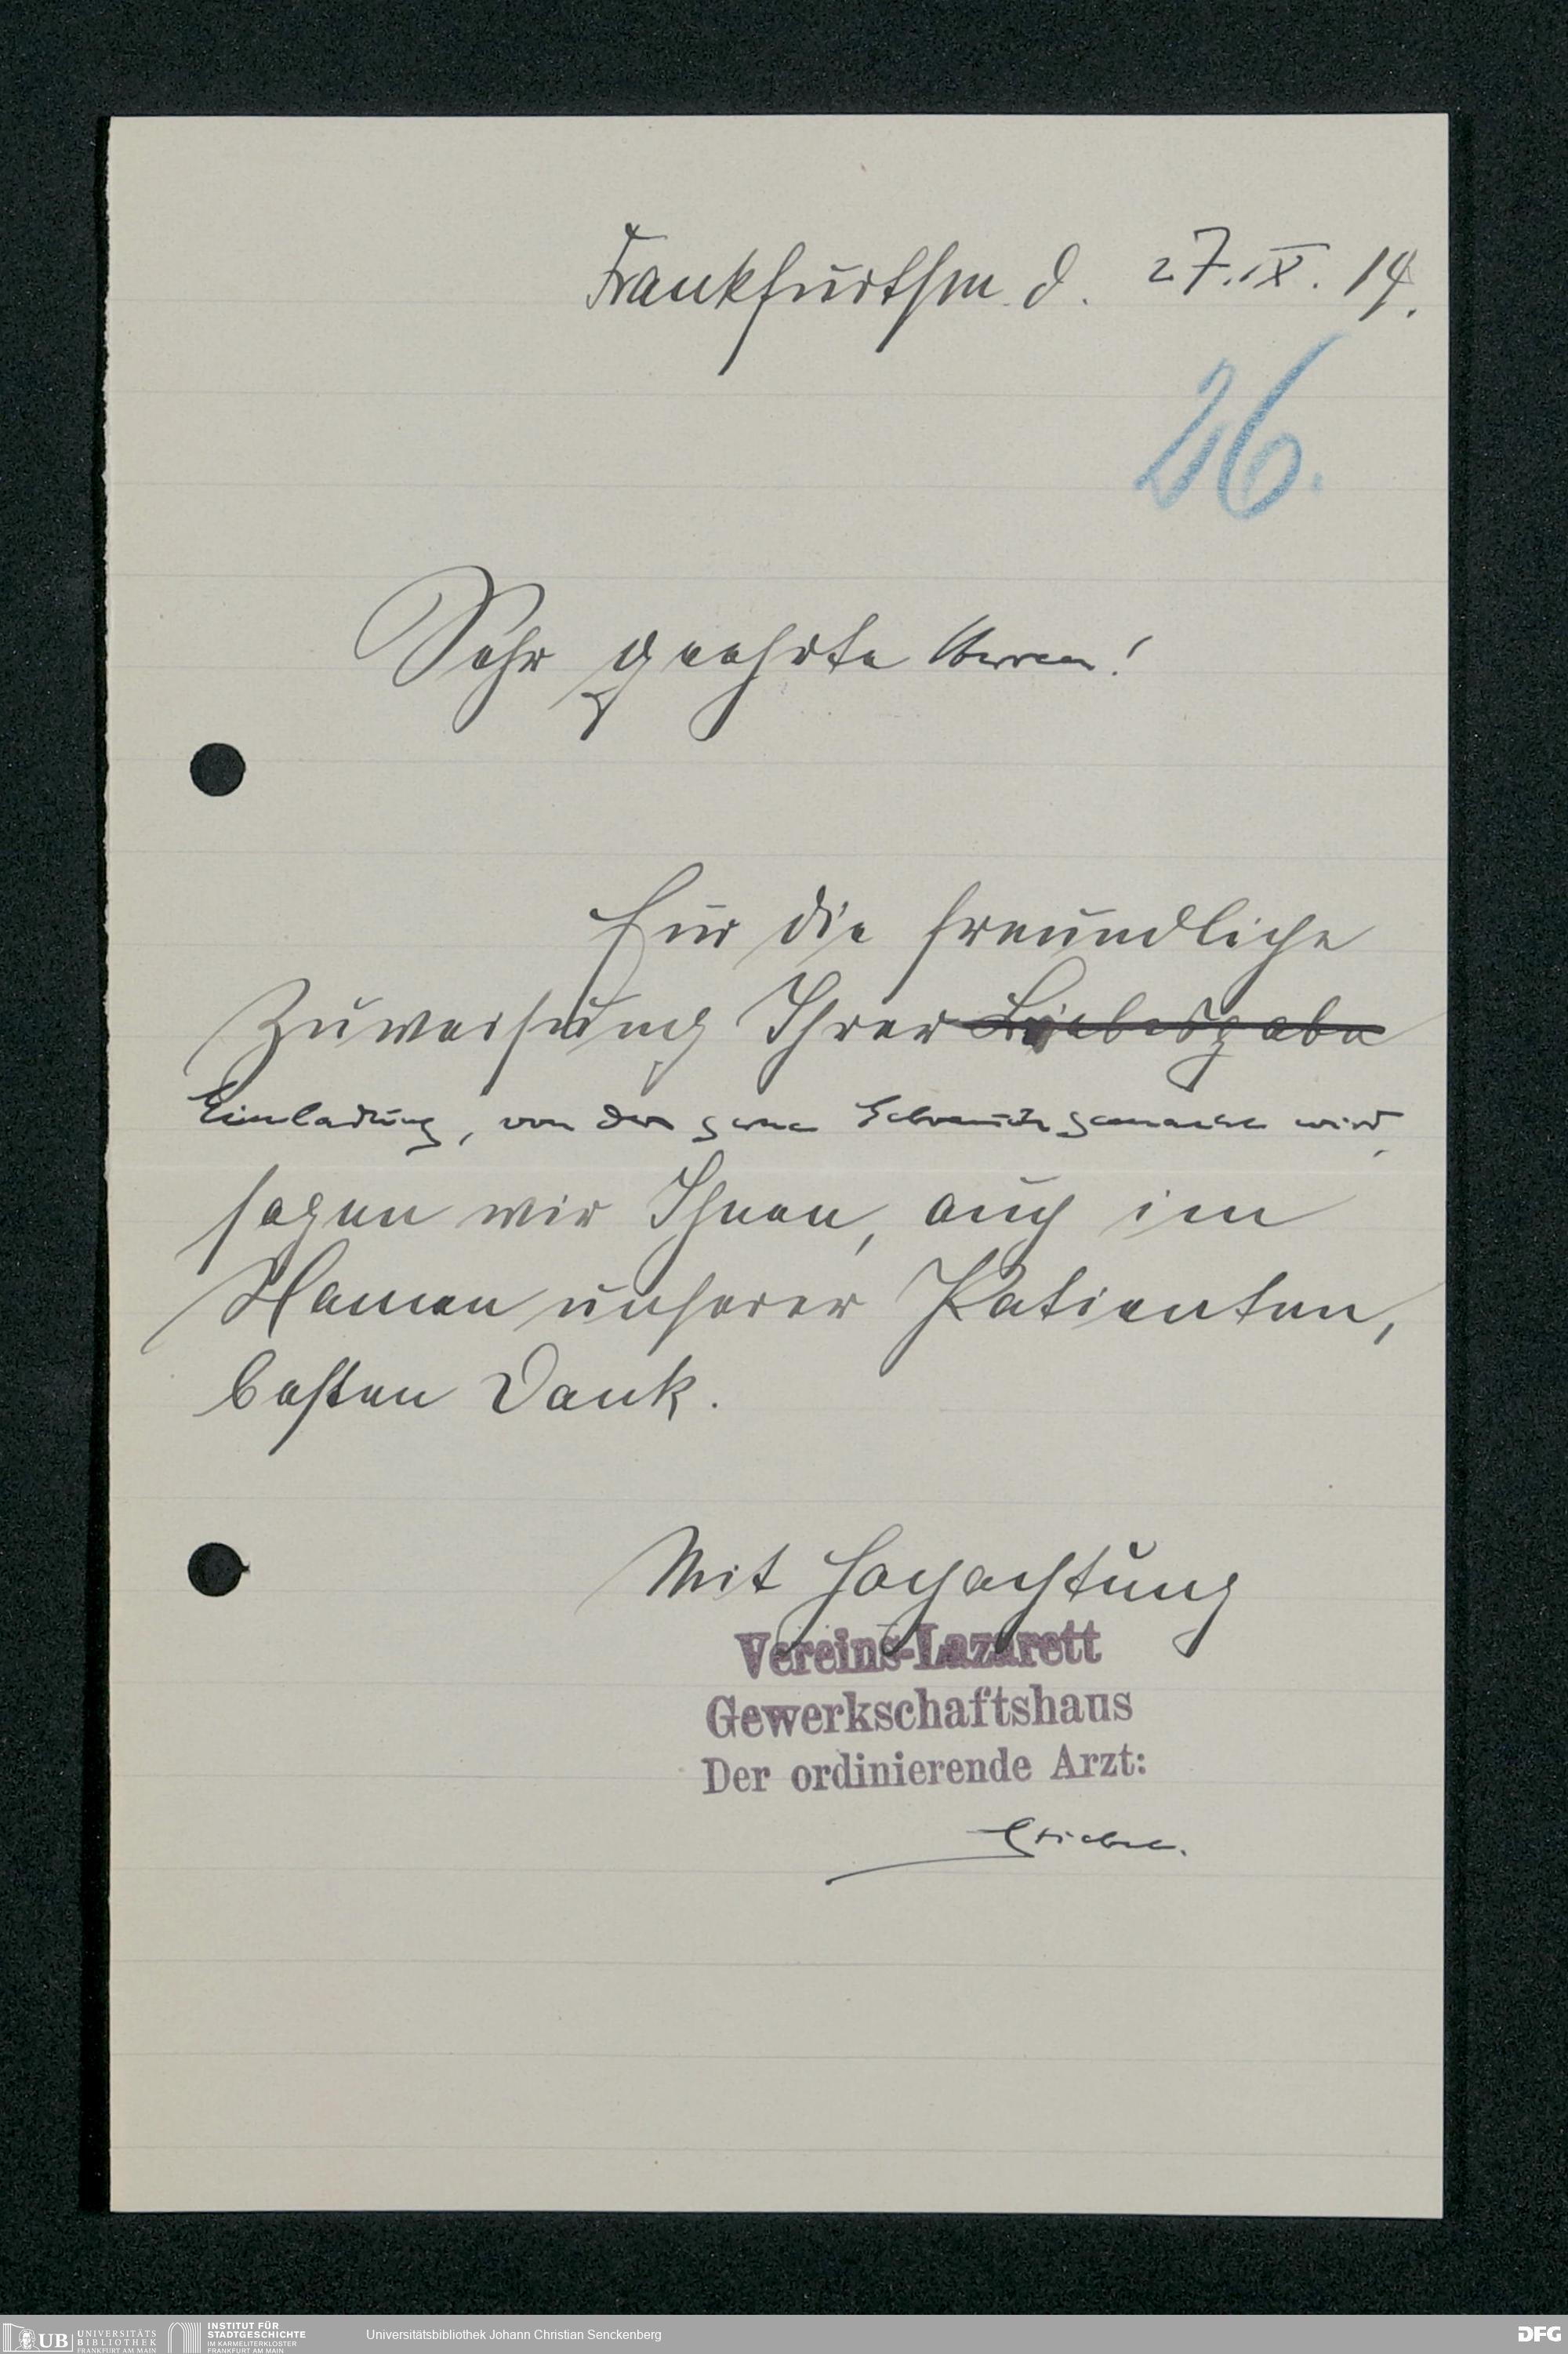 Frankfurt/m. d. 27. IX. 14.
26.
Sehr geehrte Herren!
Für die freundliche
Zuweisung Ihrer Liebesgabe
Einladung, von der gerne Gebrauch gemacht wird,
sagen wir Ihnen, auch im
Namen unserer Patienten,
besten Dank.
Mit Hochachtung
Vereins-Lazarett
Gewerkschaftshaus
Der ordinierende Arzt:
UB UNIVERSITÄTS
BIBLIOTHEK
FRANKFURT AM MAIN
INSTITUT FÜR
STADTGESCHICHTE
IM KARMELITERKLOSTER
FRANKFURT AM MAIN
Universitätsbibliothek Johann Christian Senckenberg
DFG